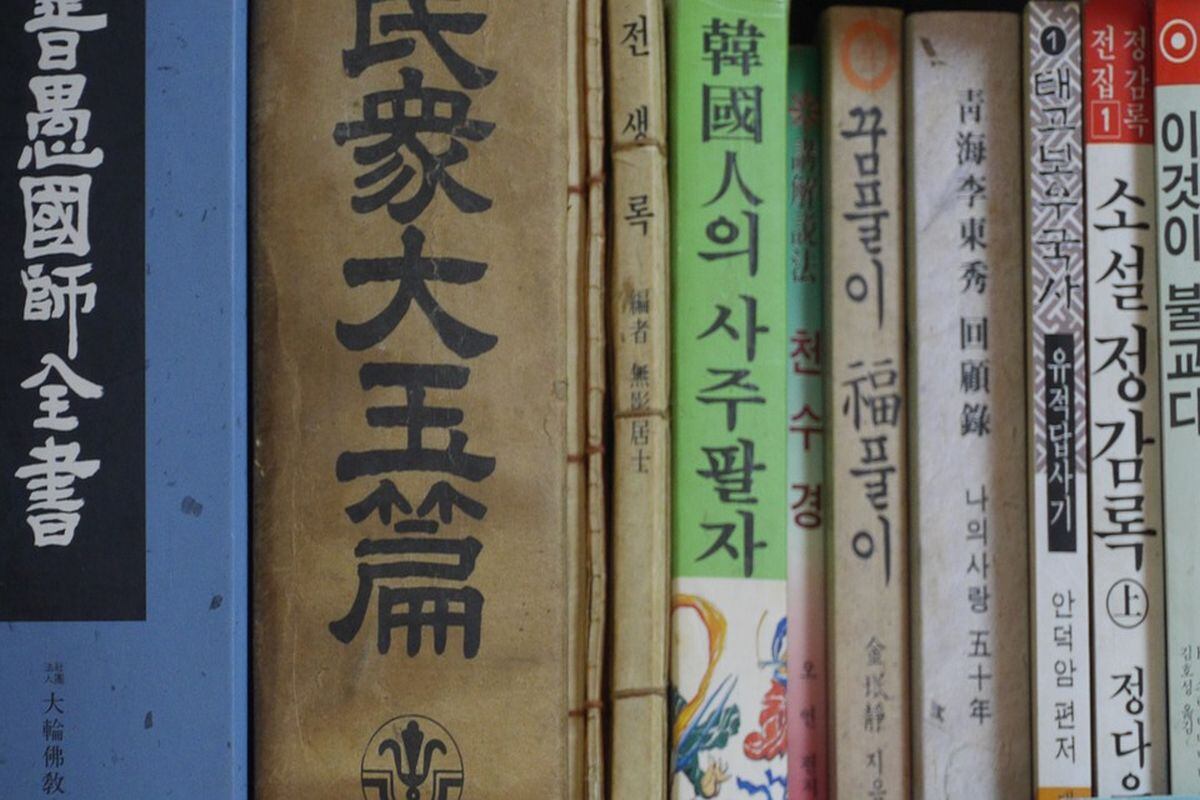 普愚國師全書
社團
法人
大輪佛敎
民衆大玉篇
전생록
編者 無影居士
韓國人의 사주팔자
講解說法
천수경
꿈풀이 福풀이
지음
靑海李東秀 回顧錄
나의사랑 五十年
1
태고보우국사
유적답사기
안덕암 편저
정감록
전집 1
소설 정감록 上
정다운
이것이 불교다
김호성 옮김